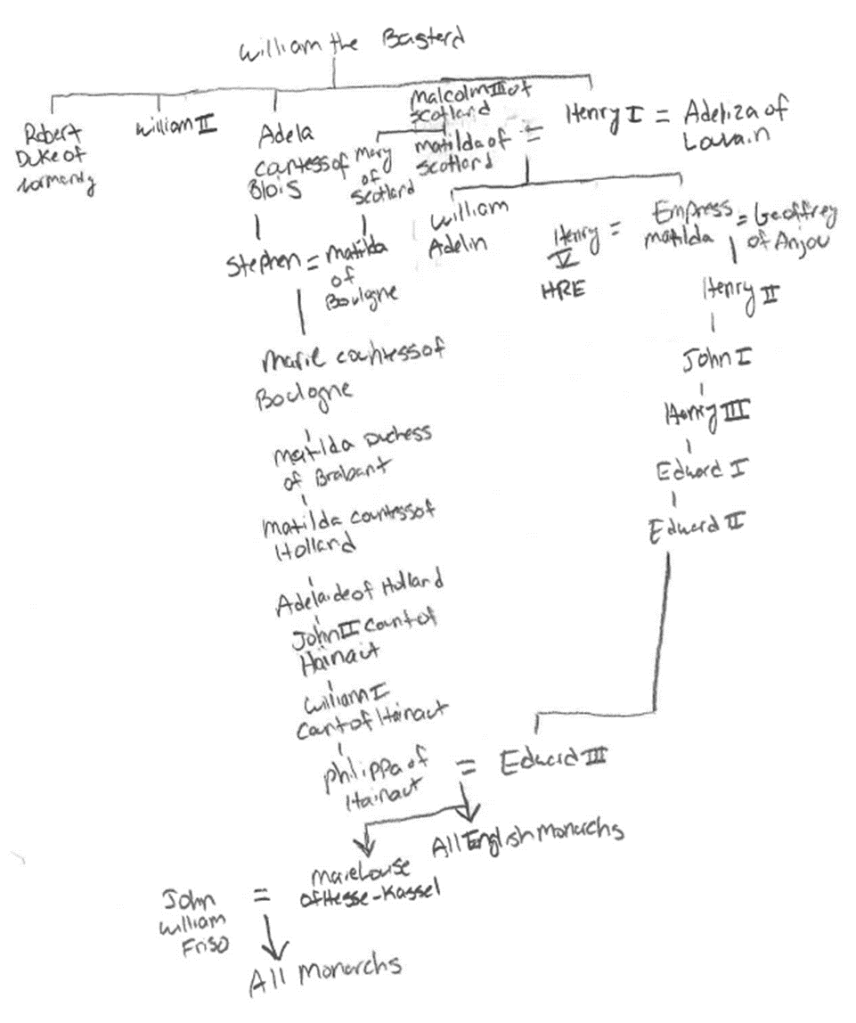 William the Basterd
Robert
Duke of
Normandy
William II
Adela
Countess of
Blois
Malcolm III of
Scotland
Mary
of
Scotland
Matilda of
Scotland
=
Henry I = Adeliza of
Lovain
Stephen = Matilda
of
Boulogne
William
Adelin
Henry
V
HRE
=
Empress
Matilda
= Geoffrey
of Anjou
Henry II
John I
Henry III
Edward I
Edward II
Marie countess of
Boulogne
Matilda Duchess
of Brabant
Matilda countess of
Holland
Adelaide of Holland
John II Count of
Hainaut
William I
Count of Hainaut
Philippa of
Hainaut
= Edward III
All English Monarchs
John
William
Friso
=
Marie Louise
of Hesse-Kassel
All Monarchs